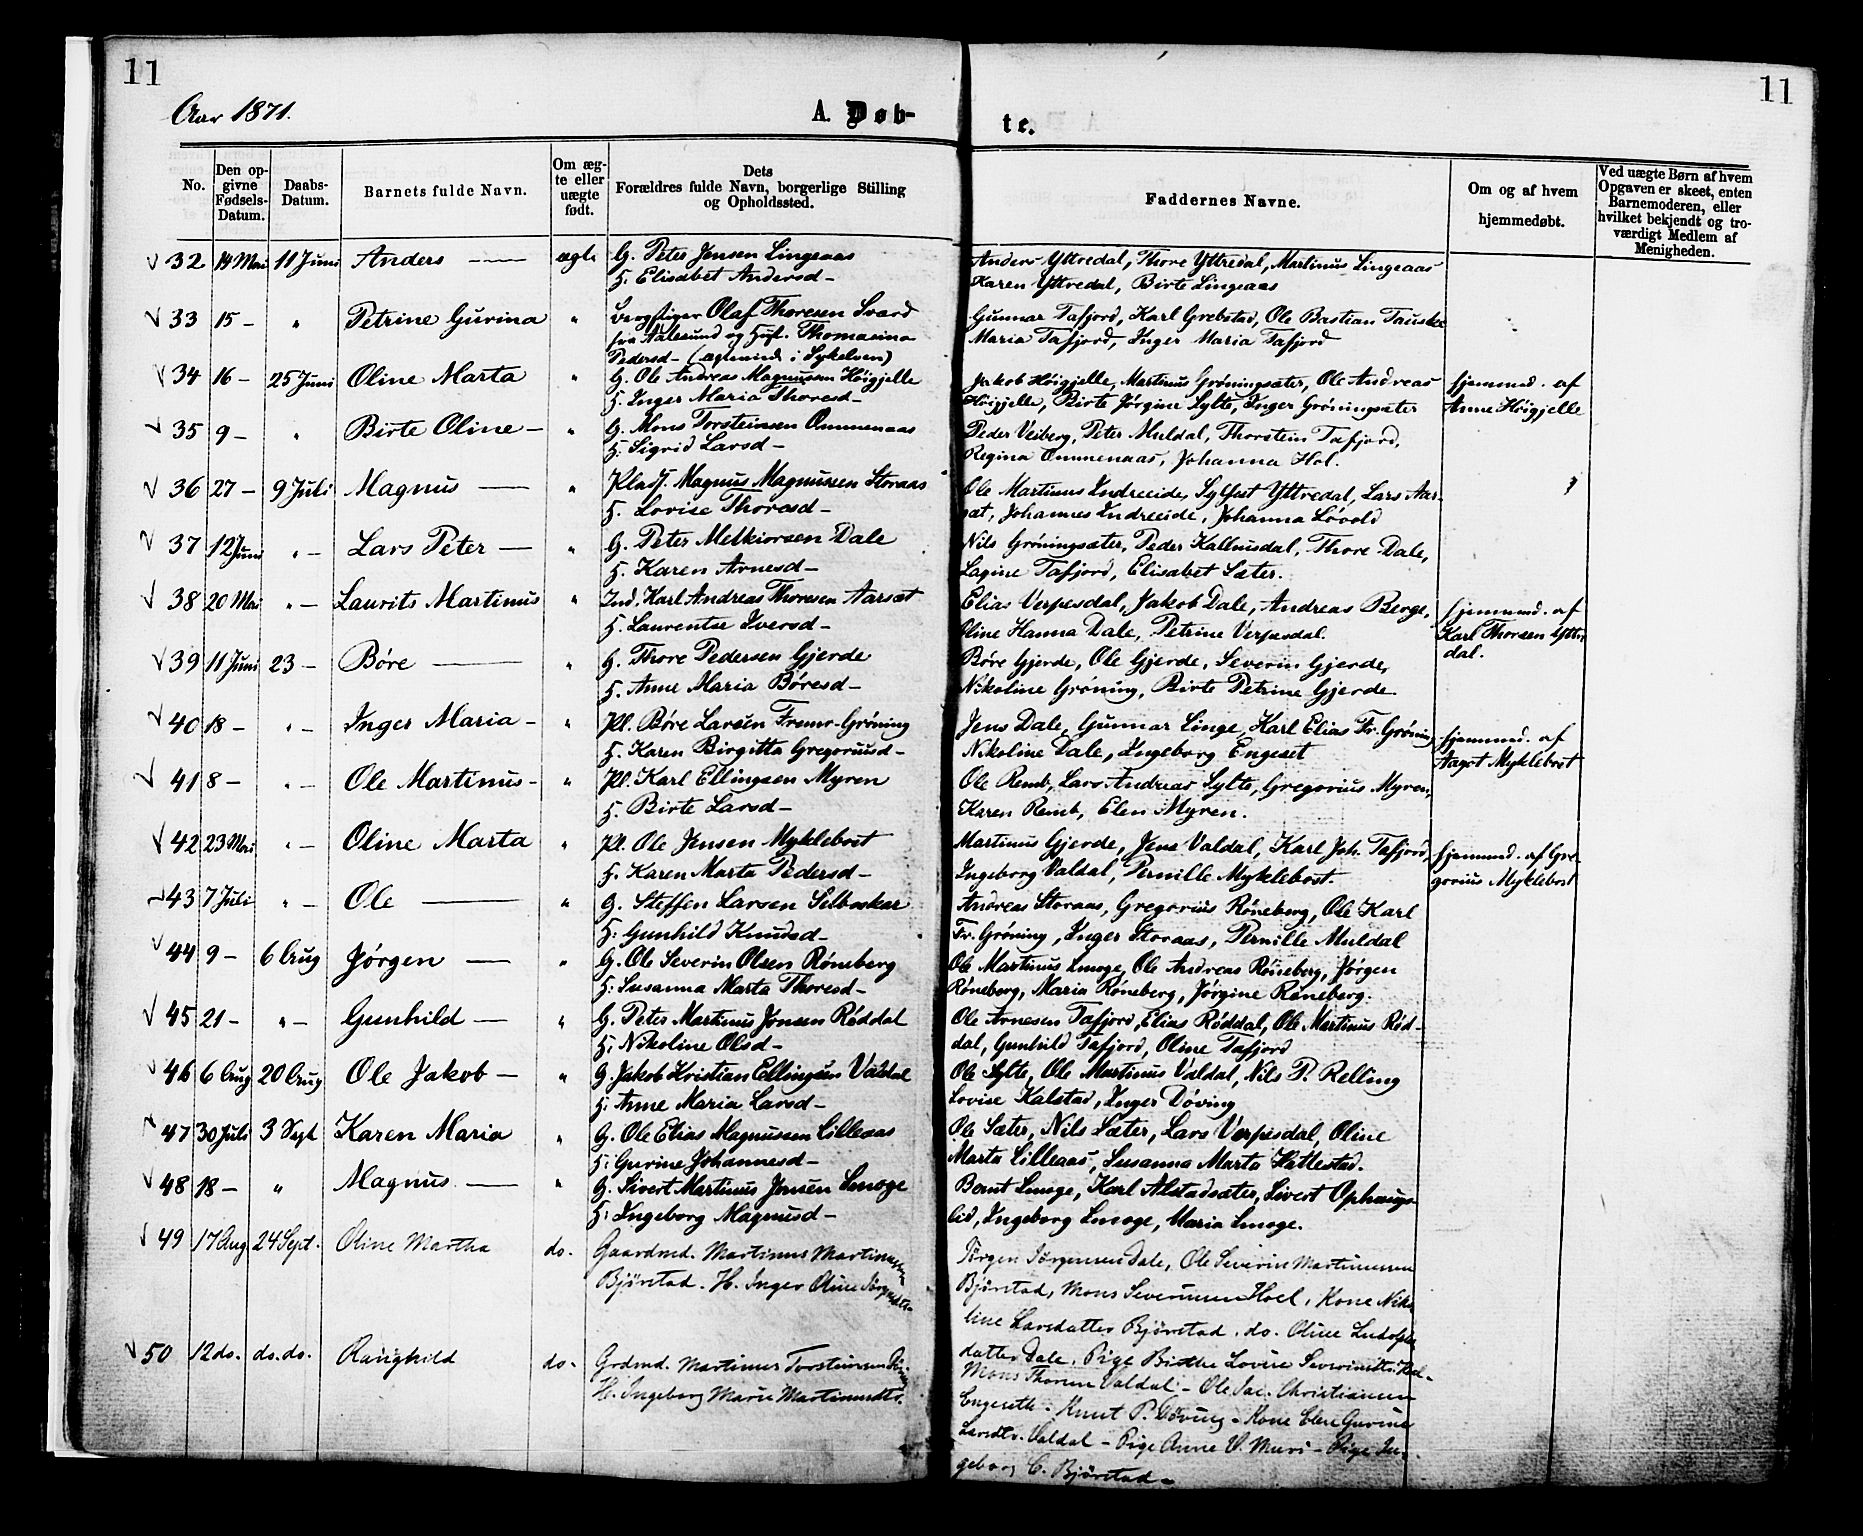 11
11
Aar 1871.
A. Døb-
te.
No.
Den op-
givne
Fødsels-
Datum.
Daabs-
Datum.
Barnets fulde Navn.
Om æg-
te eller
uægte
født.
Dets
Forældres fulde Navn, borgerlige Stilling
og Opholdssted.
Faddernes Navne.
Om og af hvem
hjemmedøbt.
Ved uægte Børn af hvem
Opgaven er skeet, enten
Barnemoderen, eller
hvilket bekjendt og tro-
værdigt Medlem af
Menigheden.
32 14 Mai 11 Juni Anders — ægte G. Peter Jensen Lingeaas
H. Elisabet Andersd —
Anders Yttredal, Thore Yttredal, Martinus Lingeaas
Karen Yttredal, Birte Lingeaas
33 15 — " Petrine Gurina " Olaf Thoresen Svard
fra Aalesund og Thomasine
Pedersd — (i Sykelven)
Gunnar Tafjord, Karl Grebstad, Ole Bastian
Maria Tafjord, Inger Maria Tafjord
34 16 — 25 Juni Oline Marta " G. Ole Andreas Magnussen Höigjelle
H. Inger Maria Thoresd —
Jakob Höigjelle, Martinus Gröningsæter, Ole Andreas
Höigjelle, Birte Jörgine Sylte, Inger Gröningsæter
hjemmed. af
Anne Höigjelle
35 9 — " Birte Oline — " G. Mons Torsteinsen Ommenaas
H. Sigrid Larsd —
Peder Veiberg, Peter Muldal, Thorstein Tafjord,
Regina Ommenaas, Johanna Hol.
36 27 — 9 Juli Magnus — " Pladsf. Magnus Magnussen Storaas
H. Lovise Thoresd —
Ole Martinus Indreeide, Sylfest Yttredal, Lars Aar-
sæt, Johannes Indreeide, Johanna Lövold
37 12 Juni " — Lars Peter — " G. Peter Melkiorsen Dale
H. Karen Arnesd —
Nils Gröningsæter, Peder Kalhusdal, Thore Dale,
Lagine Tafjord, Elisabet Sæter.
38 20 Mai " — Laurits Martinus " Ind. Karl Andreas Thoresen Aarsæt
H. Laurentse Iversd —
Elias Verpesdal, Jakob Dale, Andreas Berge,
Oline Hanna Dale, Petrine Verpesdal.
hjemmed. af
Karl Thorsen Yttre
dal.
39 11 Juni 23 — Böre — " G. Thore Pedersen Gjerde
H. Anne Maria Böresd —
Böre Gjerde, Ole Gjerde, Severin Gjerde,
Nikoline Gröning, Birte Petrine Gjerde
40 18 — " — Inger Maria — " Pl. Böre Larsen Fremr-Gröning
H. Karen Birgitta Gregoriusd —
Jens Dale, Gunnar Linge, Karl Elias Fr. Gröning
Nikoline Dale, Ingeborg Engeset
hjemmed. af
Aagot Myklebost
41 8 — " — Ole Martinus — " Pl. Karl Ellingsen Myren
H. Birte Larsd —
Ole Remb, Lars Andreas Sylte, Gregorius Myren,
Karen Remb, Elen Myren.
42 23 Mai " — Oline Marta " Pl. Ole Jensen Myklebost
H. Karen Marta Pedersd —
Martinus Gjerde, Jens Valdal, Karl Joh. Tafjord,
Ingeborg Valdal, Pernille Myklebost.
hjemmed. af Gre-
gorius Myklebost
43 7 Juli " — Ole — " G. Steffen Larsen Selboskar
H: Gunhild Knudsd —
Andreas Storaas, Gregorius Röneberg, Ole Karl
Fr. Gröning, Inger Storaas, Pernille Muldal
44 9 — 6 Aug Jörgen — " G. Ole Severin Olsen Röneberg
H: Susanna Marta Thoresd —
Ole Martinus Smoge, Ole Andreas Röneberg, Jörgen
Röneberg, Maria Röneberg, Jörgine Röneberg.
45 21 — " — Gunhild — " G. Peter Martinus Jonsen Röddal
H: Nikoline Olsd —
Ole Arnesen Tafjord, Elias Röddal, Ole Martinus Röd-
dal, Gunhild Tafjord, Oline Tafjord
46 6 Aug 20 Aug Ole Jakob — " G. Jakob Kristian Ellingsen Valdal
H: Anne Maria Larsd —
Ole Sylte, Ole Martinus Valdal, Nils P. Relling
Lovise Kalstad, Inger Döving
47 30 Juli 3 Sept Karen Maria " G. Ole Elias Magnussen Lilleaas
H: Gurine Johannesd —
Ole Sæter, Nils Sæter, Lars Verpesdal, Oline
Marta Lilleaas, Susanna Marta Hattestad.
48 18 — " Magnus — " G. Sivert Martinus Jensen Smoge
H: Ingeborg Magnusd —
Bernt Smoge, Karl Alstadsæter, Sivert Ophaugs-
lid, Ingeborg Smoge, Maria Smoge.
49 17 Aug 24 Sept. Oline Martha do. Gaardmd. Martinus Martinussen
Bjørstad. H. Inger Oline Jørgensdtr
Jørgen Jørgensen Dale, Ole Severin Martinussen
Bjørstad, Mons Severinsen Hoel, Kone Niko-
line Larsdatter Bjørstad, do. Oline Ludolfs-
datter Dale, Pige Birthe Lovise Severinsdtr. Hoel —
50 12 do. do. do. Ranghild do. Grdmd. Martinus Torsteinsen
H. Ingeborg Marie Martinusdtr.
Mons Thoresen Valdal — Ole Jac. Christiansen
Engeseth — Knut P. Døving — Kone Elen Gurine
Larsdtr. Valdal — Pige Anne V. Muri — Pige In-
geborg C. Bjørstad —